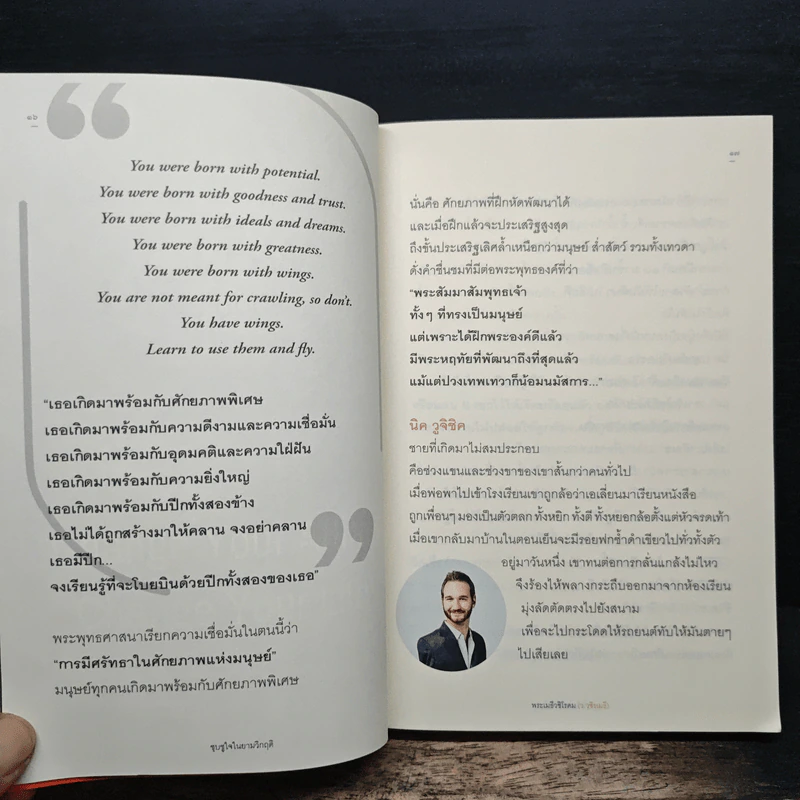 ๑๖
You were born with potential.
You were born with goodness and trust.
You were born with ideals and dreams.
You were born with greatness.
You were born with wings.
You are not meant for crawling, so don't.
You have wings.
Learn to use them and fly.
"เธอเกิดมาพร้อมกับศักยภาพพิเศษ
เธอเกิดมาพร้อมกับความดีงามและความเชื่อมั่น
เธอเกิดมาพร้อมกับอุดมคติและความใฝ่ฝัน
เธอเกิดมาพร้อมกับความยิ่งใหญ่
เธอเกิดมาพร้อมกับปีกทั้งสองข้าง
เธอไม่ได้ถูกสร้างมาให้คลาน จงอย่าคลาน
เธอมีปีก...
จงเรียนรู้ที่จะโบยบินด้วยปีกทั้งสองของเธอ"
พระพุทธศาสนาเรียกความเชื่อมั่นในตนนี้ว่า
"การมีศรัทธาในศักยภาพแห่งมนุษย์"
มนุษย์ทุกคนเกิดมาพร้อมกับศักยภาพพิเศษ
ชุบชูใจในยามวิกฤติ
๑๗
นั่นคือ ศักยภาพที่ฝึกหัดพัฒนาได้
และเมื่อฝึกแล้วจะประเสริฐสูงสุด
ถึงขั้นประเสริฐเลิศล้ำเหนือกว่ามนุษย์ ส่ำสัตว์ รวมทั้งเทวดา
ดั่งคำชื่นชมที่มีต่อพระพุทธองค์ที่ว่า
"พระสัมมาสัมพุทธเจ้า
ทั้งๆ ที่ทรงเป็นมนุษย์
แต่เพราะได้ฝึกพระองค์ดีแล้ว
มีพระหฤทัยที่พัฒนาถึงที่สุดแล้ว
แม้แต่ปวงเทพเทวาก็น้อมนมัสการ..."
นิค วูจิซิค
ชายที่เกิดมาไม่สมประกอบ
คือช่วงแขนและช่วงขาของเขาสั้นกว่าคนทั่วไป
เมื่อพ่อพาไปเข้าโรงเรียนเขาถูกล้อว่าเอเลี่ยนมาเรียนหนังสือ
ถูกเพื่อนๆ มองเป็นตัวตลก ทั้งหยิก ทั้งตี ทั้งหยอกล้อตั้งแต่หัวจรดเท้า
เมื่อเขากลับมาบ้านในตอนเย็นจะมีรอยฟกช้ำดำเขียวไปทั่วทั้งตัว
อยู่มาวันหนึ่ง เขาทนต่อการกลั่นแกล้งไม่ไหว
จึงร้องไห้พลางกระถืบออกมาจากห้องเรียน
มุ่งลัดตัดตรงไปยังสนาม
เพื่อจะไปกระโดดให้รถยนต์ทับให้มันตายๆ
ไปเสียเลย
พระเมธีวชิโรดม